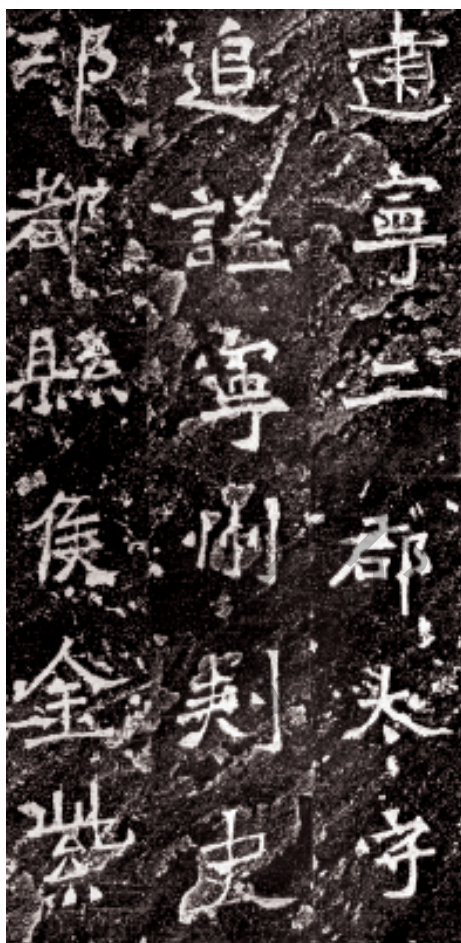 建寧二郡太守
追謚寧州刺史
邛都縣侯金紫